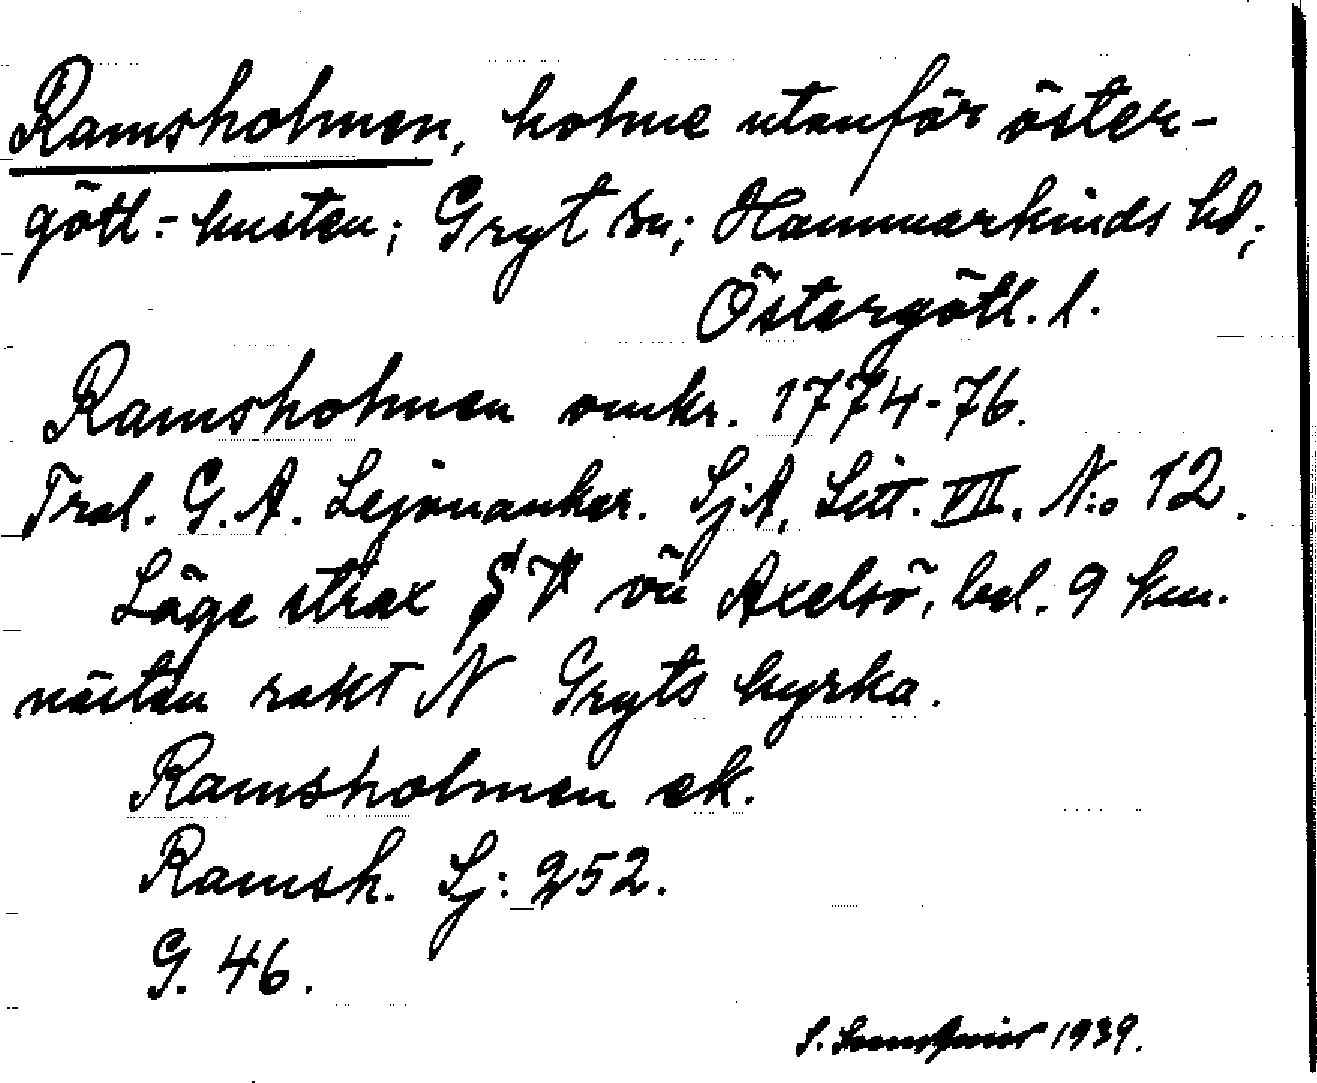 Ramsholmen, holme utanför öster-
götl.-kusten; Gryt sn; Hammarkinds hd;
Östergötl. l.
Ramsholmen omkr. 1774-76.
Tral. G. A. Lejonanker. SjA, Litt. VII. N:o 12.
Läge strax SV ön Axelsö, bel. 9 km.
nästan rakt N Gryts kyrka.
Ramsholmen ek.
Ramsh. Sj: 252.
G. 46.
S. 1939.